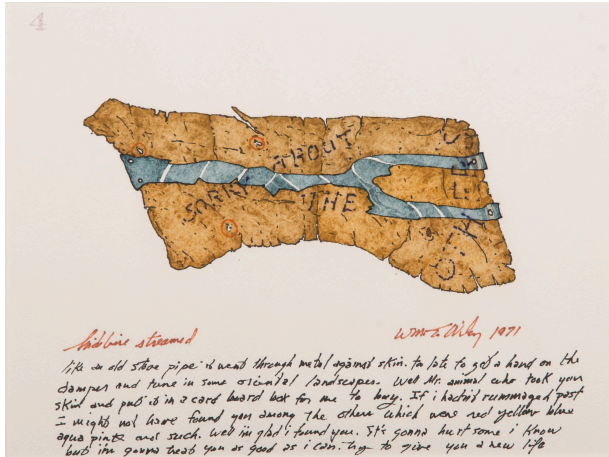 4
SORRY ABOUT
THE
streamed
Wm T. Wiley 1971
like an old stove pipe it went through metal against skin. to late to get a hand on the
damper and tune in some oriental landscapes. Well Mr. animal who took your
skin and put it in a card board box for me to buy. If i hadn't rummaged past
I might not have found you among the others which were red yellow blue
aqua pinks and such. Well im glad i found you. It's gonna hurt some i know
but im gonna treat you as good as i can. try to give you a new life